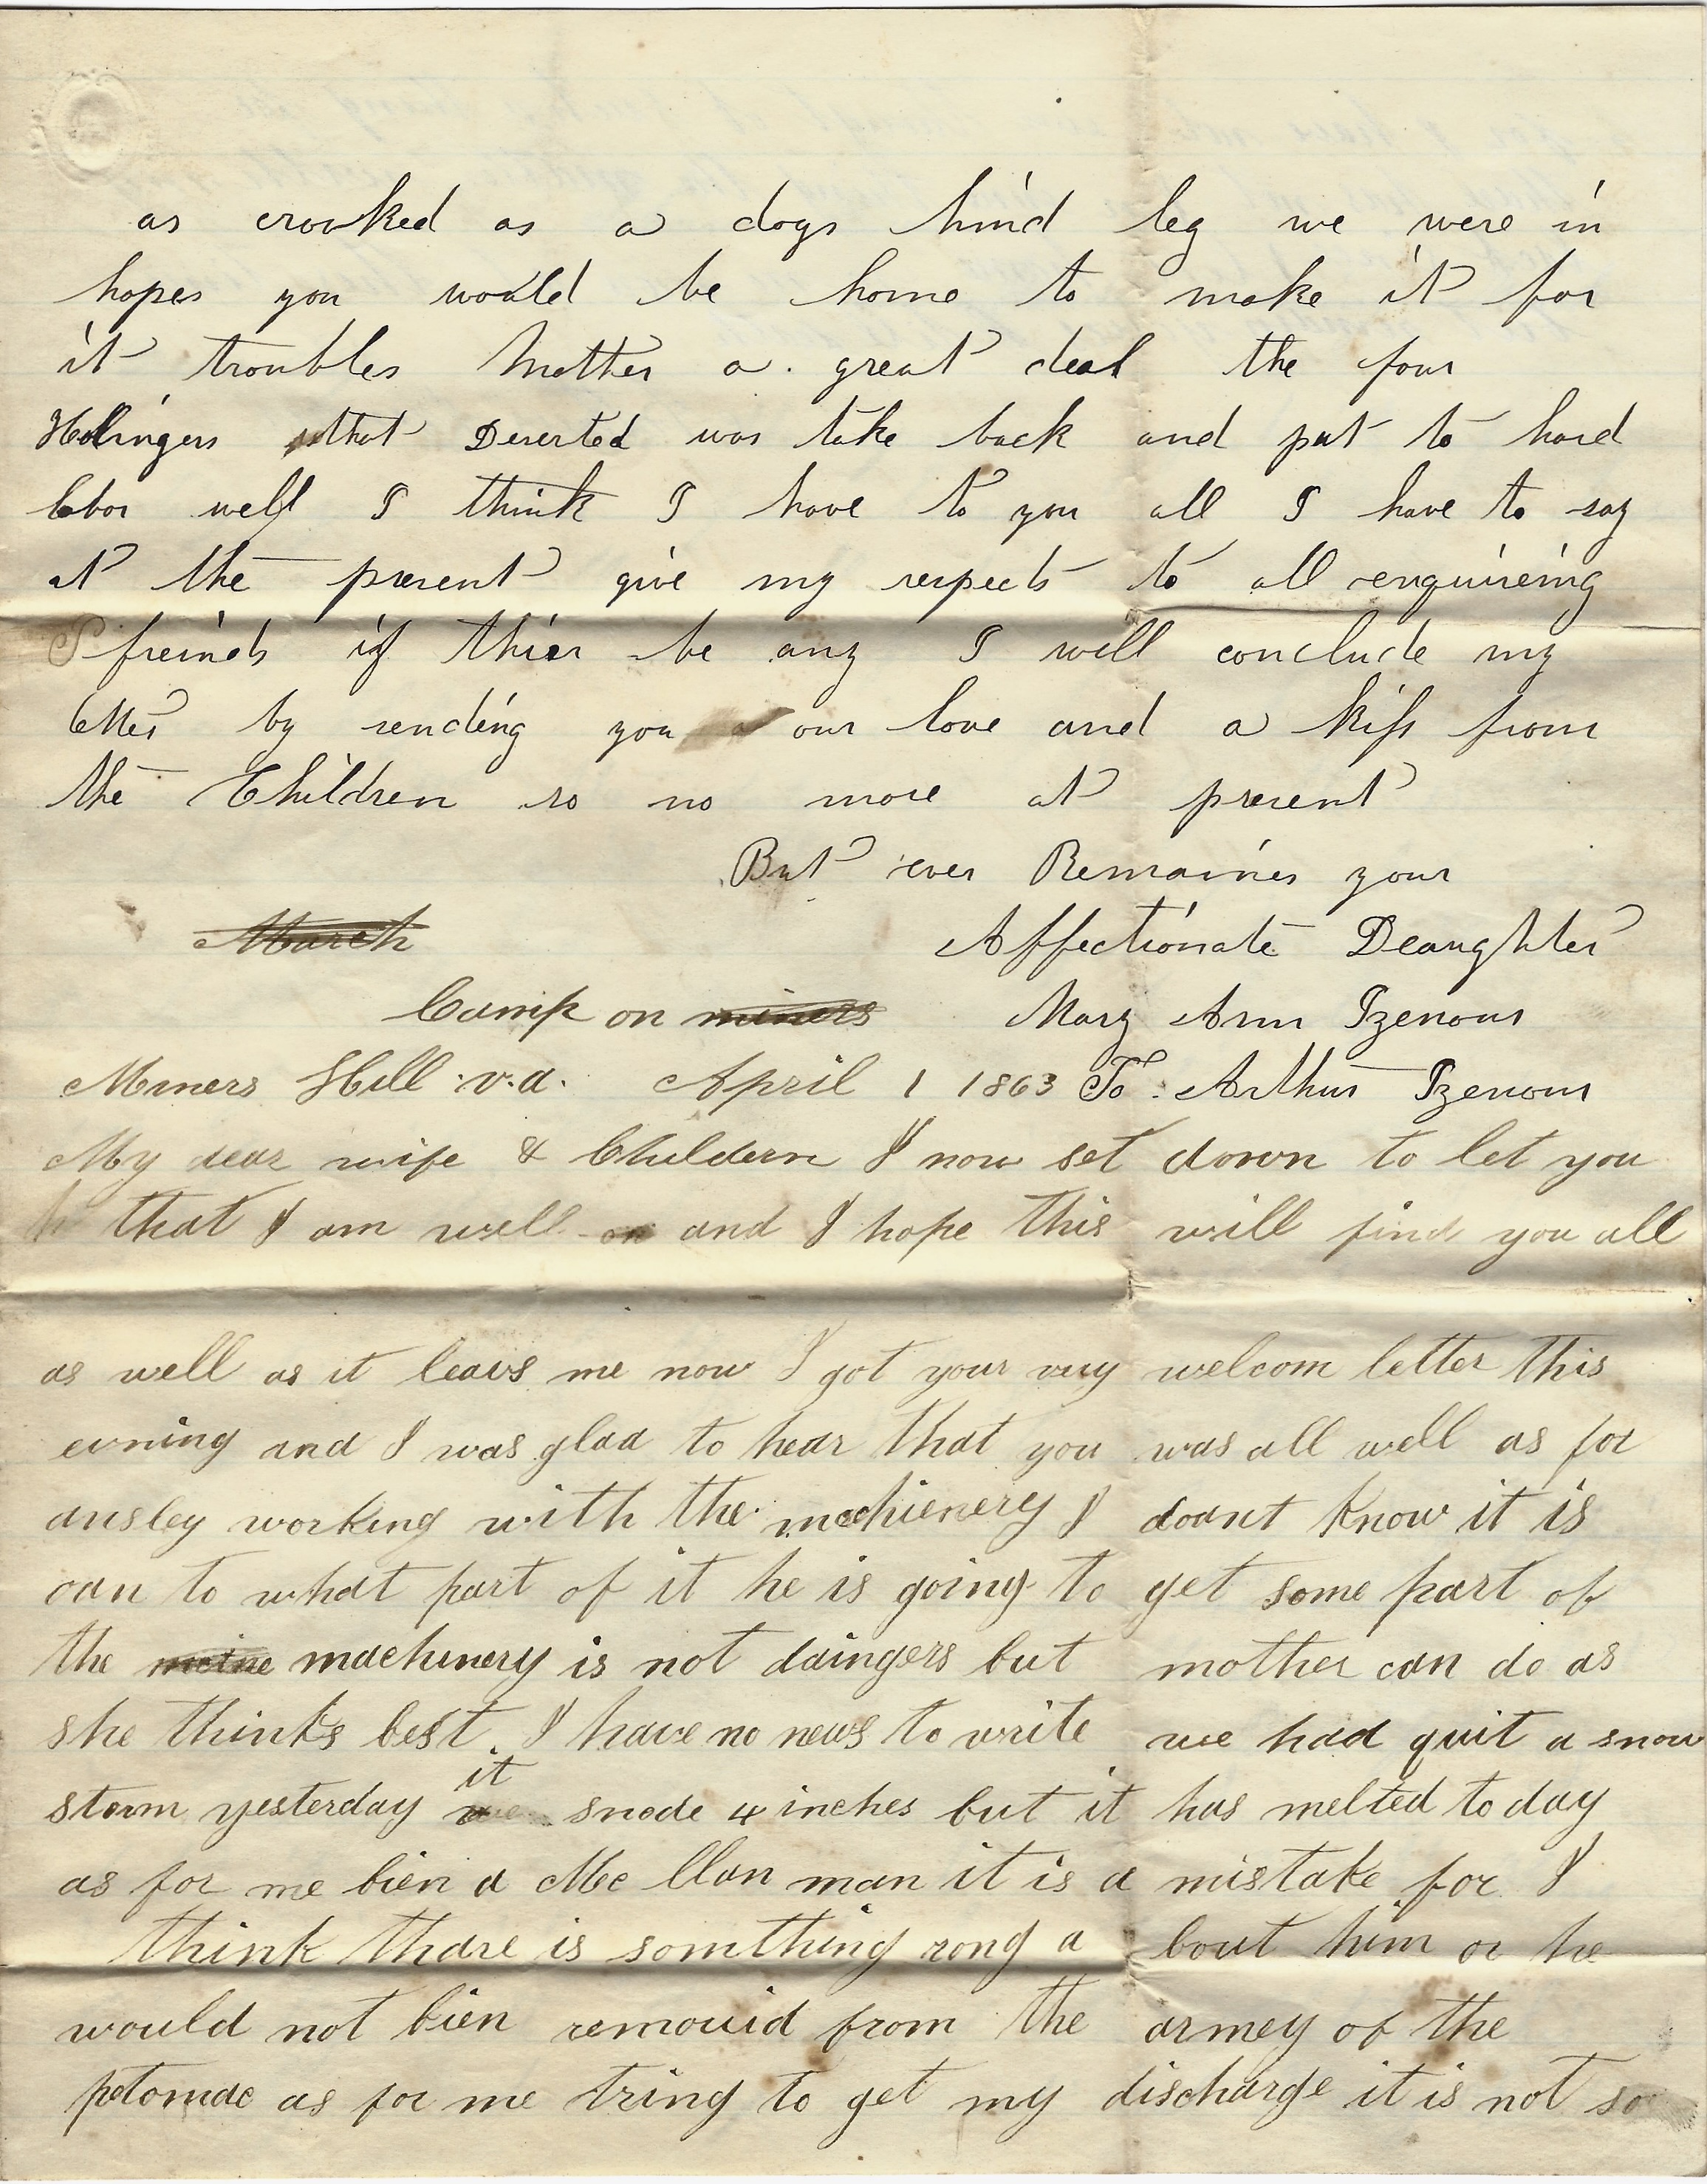 as crooked as a dogs hind leg we were in
hopes you would be home to make it for
it troubles Mother a great deal the four
Hollingers that Deserted was take back and put to hard
labor well I think I have to you all I have to say
at the present give my respects to all enquireing
freinds if thier be any I will conclude my
letter by sending you our love and a kiss from
the Children so no more at present
But ever Remaines your
March Affectionate Deaughter
Camp on miners Mary Ann Izenour
Miners Hill v.a. April 1 1863 To Arthur Izenour
My dear wife & Childern I now set down to let you
that I am well and I hope this will find you all
as well as it leavs me now I got your very welcom letter this
evning and I was glad to hear that you was all well as for
ansley working with the mechienery I doant know it is
oan to what part of it he is going to get some part of
the machinery is not daingers but mother can do as
she thinks best I have no news to write we had quit a snow
storm yesterday it snode 4 inches but it has melted to day
as for me bien a Mc llan man it is a mistake for I
think thare is somthing rong a bout him or he
would not bien removid from the armey of the
potomac as for me tring to get my discharge it is not so